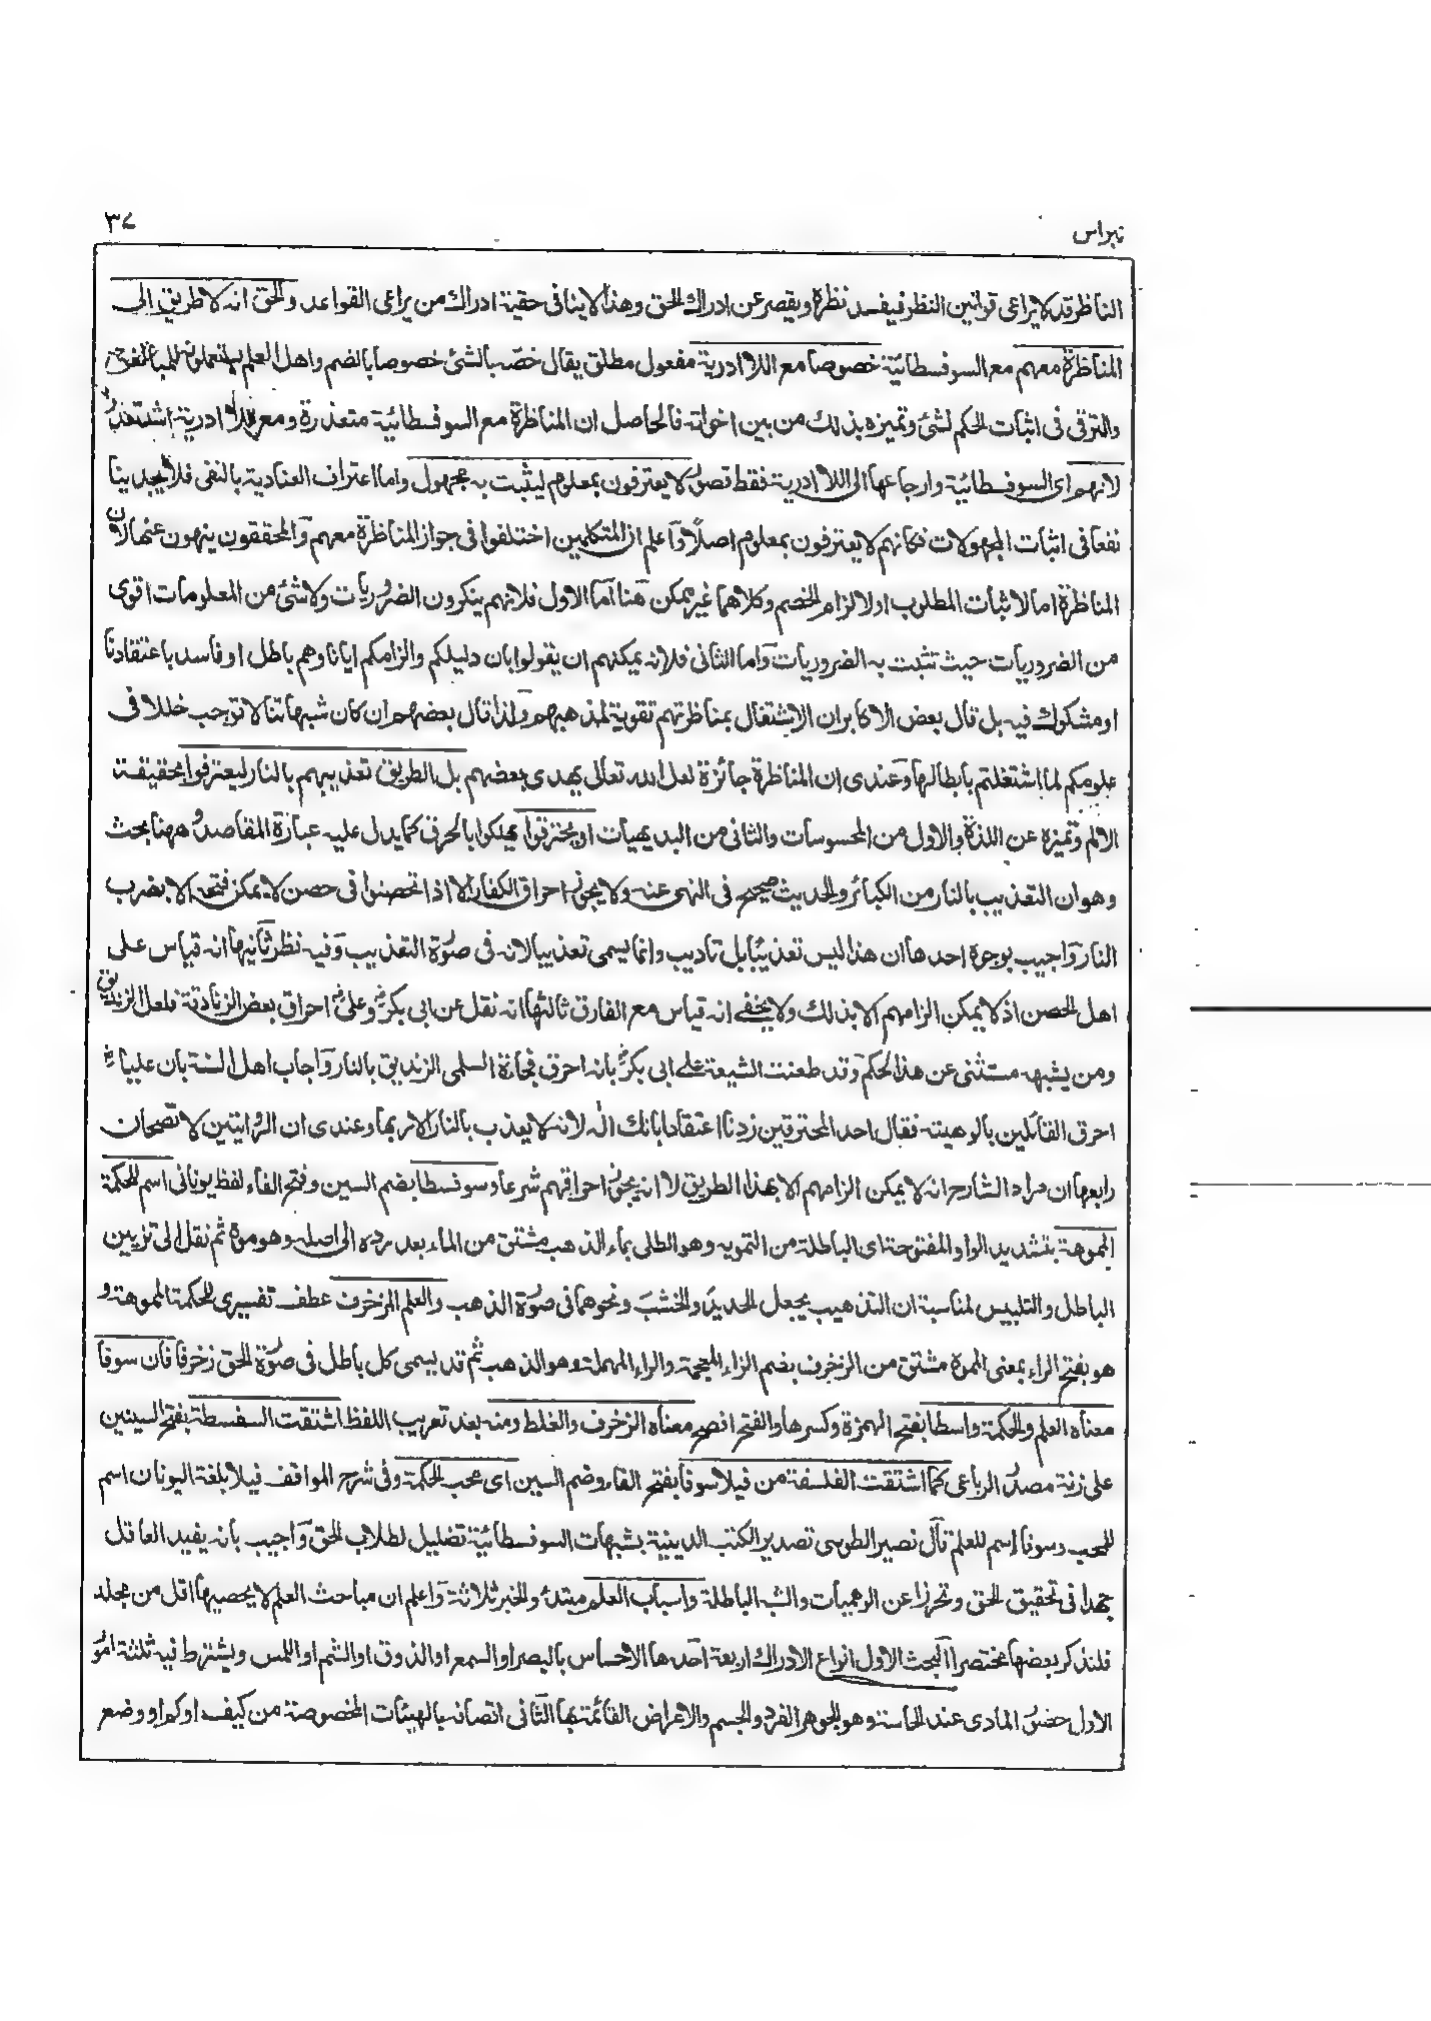 نبراس
٣٧
الناظر قد لا يراعى قوانين النظر فيفسد نظره ويقصر عن ادراك الحق وهذا لا ينافى حقية ادراك من يراعى القواعد والحق انه لا طريق الى
المناظرة معهم مع السوفسطائية خصوصا مع اللا ادرية مفعول مطلق يقال خصّه بالشئ خصوصا بالضم واهل العلم يستعملونه للمبالغة
والترقى فى اثبات الحكم لشئ وتميزه بذلك من بين اخواته فالحاصل ان المناظرة مع السوفسطائية متعذرة ومع اللا ادرية اشد تعذرا
لانهم اى السوفسطائية وارجاعها الى اللا ادرية فقط قصور لا يعترفون بمعلوم ليثبت به مجهول واما اعتراف العنادية بالنفى فلا يجدينا
نفعا فى اثبات المجهولات فكانهم لا يعترفون بمعلوم اصلًا وآعلم ان المتكلمين اختلفوا فى جواز المناظرة معهم وآلمحققون ينهون عنها لان
المناظرة اما لاثبات المطلوب او لالزام الخصم وكلاهما غير ممكن هنا آما الاول فلانهم ينكرون الضروريات ولا شئ من المعلومات اقوى
من الضروريات حيث تثبت به الضروريات وآما الثانى فلانه يمكنهم ان يقولوا بان دليلكم والزامكم ايانا وهم باطل او فاسد باعتقادنا
او مشكوك فيه بل قال بعض الاكابر ان الاشتغال بمناظرتهم تقوية لمذهبهم ولذا قال بعضهم ان كان شبهاتنا لا توجب خللا فى
علومكم لما اشتغلتم بابطالها وعندى ان المناظرة جائزة لعل الله تعالى يهدى بعضهم بل الطريق تعذيبهم بالنار ليعترفوا بحقيقة
الالم وتميزه عن اللذة والاول من المحسوسات والثانى من البديهيات او يحترقوا يهلكوا بالحرق كما يدل عليه عبارة المقاصد وههنا بحث
وهو ان التعذيب بالنار من الكبائر والحديث صحيح فى النهى عنه ولا يجوز احراق الكفار الا اذا تحصنوا فى حصن لا يمكن فتحه الا بضرب
النار وآجيب بوجوه احدها ان هذا ليس تعذيبًا بل تاديب وانما يسمى تعذيبا لانه فى صورة التعذيب وفيه نظر ثانيها انه قياس على
اهل الحصن اذ لا يمكن الزامهم الا بذلك ولا يخفى انه قياس مع الفارق ثالثها انه نقل عن ابى بكرؓ وعلىؓ احراق بعض الزنادقة فلعل الزنديق
ومن يشبهه مستثنى عن هذا الحكم وقد طعنت الشيعة على ابى بكرؓ بانه احرق فجاءة السلمى الزنديق بالنار وآجاب اهل السنة بان علياؓ
احرق القائلين بالوهيته فقال احد المحترقين زدنا اعتقادا بانك اله لانه لا يعذب بالنار الا ربها وعندى ان الروايتين لا تصحان
رابعها ان مراد الشارح انه لا يمكن الزامهم الا بهذا الطريق لا انه يجوز احراقهم شرعا وسوفسطا بضم السين وفتح الفاء لفظ يونانى اسم للحكمة
المموهة بتشديد الواو المفتوحة اى الباطلة من التمويه وهو الطلى بماء الذهب مشتق من الماء بعد رده الى اصله وهو موه ثم نقل الى تزيين
الباطل والتلبيس لمناسبة ان التذهيب يجعل الحديد والخشب ونحوهما فى صورة الذهب والعلم المزخرف عطف تفسيرى للحكمة المموهة و
هو بفتح الراء بمعنى المموه مشتق من الزخرف بضم الزاء المعجمة والراء المهملة وهو الذهب ثم قد يسمى كل باطل فى صورة الحق زخرفا فان سوفا
معناه العلم والحكمة واسطا بفتح الهمزة وكسرها والفتح افصح معناه الزخرف والغلط ومنه بعد تعريب اللفظ اشتقت السفسطة بفتح السينين
على زنة مصدر الرباعى كما اشتقت الفلسفة من فيلاسوفا بفتح الفاء وضم السين اى محب الحكمة وفى شرح المواقف فيلا بلغة اليونان اسم
للمحب وسوفا اسم للعلم قآل نصير الطوسى تصدير الكتب الدينية بشبهات السوفسطائية تضليل لطلاب الحق وآجيب بانه يفيد العاقل
جهدا فى تحقيق الحق وتحرزا عن الوهميات والشبه الباطلة واسباب العلم مبتدء والخبر ثلاثة وآعلم ان مباحث العلم لا يحصيها اقل من مجلد
فلنذكر بعضها مختصرا آلبحث الاول انواع الادراك اربعة آحدها الاحساس بالبصر او السمع او الذوق او الشم او اللمس ويشترط فيه ثلثة امور
الاول حضور المادى عند الحاسة وهو الجوهر الفرد والجسم والاعراض القائمة بها الثآنى اتصافه بالهيئات المخصوصة من كيف او كم او وضع